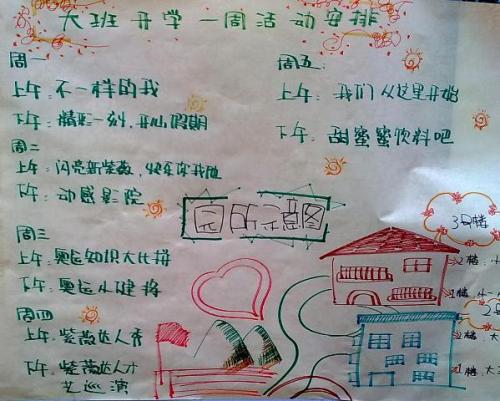 大班开学一周活动安排
周一
上午：不一样的我
下午：精彩一刻，开心假期
周二
上午：闪亮新紫薇，快乐你我随
下午：动感影院
周三
上午：奥运知识大比拼
下午：奥运小健将
周四
上午：紫薇达人秀
下午：紫薇达人才
艺巡演
周五：
上午：我们从这里开始
下午：甜蜜蜜饮料吧
园所示意图
3号楼
2楼：小
1楼：小一
2楼：大
1楼：大